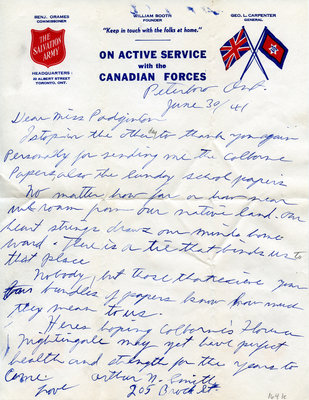 BENJ. ORAMES
COMMISSIONER
WILLIAM BOOTH
FOUNDER
GEO. L. CARPENTER
GENERAL
"Keep in touch with the folks at home."
THE SALVATION ARMY
ON ACTIVE SERVICE
with the
CANADIAN FORCES
HEADQUARTERS:
20 ALBERT STREET
TORONTO, ONT.
Peterboro Ont.
June 30/41
Dear Miss
I stop in the other to thank you again
Personally for sending me the Colborne
Papers, also the Sunday school papers
No matter how far or how near
we roam from our native land. Our
heart strings draws our minds home
ward. There is a tie that binds us to
that place
Nobody, but those that recieve your
bundles of papers know how much
they mean to us.
Heres hoping Colborne's Florence
Nightingale may yet have perfect
health and strength for the years to
come.
Arthur N. Smith
Love
205 Brock St